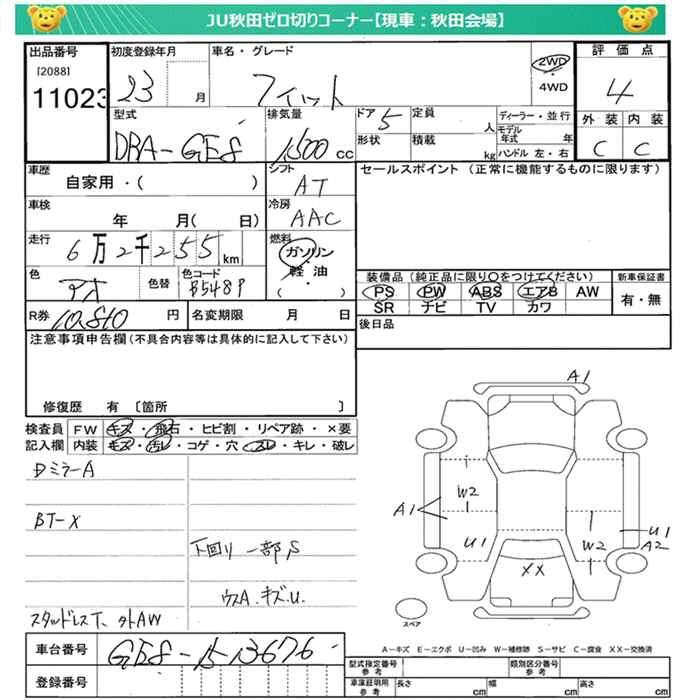 JU秋田ゼロ切りコーナー【現車：秋田会場】
出品番号 初度登録年月 車名・グレード 評価点
[2088] 11023 23 月 フィット 2WD 4WD 4
型式 DBA-GE8 排気量 1500 cc ドア 5 形状 定員 人 積載 kg ディーラー・並行 モデル年式 年 ハンドル 左・右 外装 内装 C C
車歴 自家用・( ) シフト AT セールスポイント (正常に機能するものに限ります)
車検 年 月( 日) 冷房 AAC
走行 6万2千255km 燃料 ガソリン・軽油・( )
色 アオ 色替 色コード B548P 装備品 (純正品に限り○をつけてください) 新車保証書
PS PW ABS エアB AW 有・無
SR ナビ TV カワ
R券 10,810 円 名変期限 月 日 後日品
注意事項申告欄(不具合内容等は具体的に記入して下さい)
修復歴 有 〔箇所 〕
検査員 FW キズ・飛石・ヒビ割・リペア跡・×要
記入欄 内装 キズ・汚レ・コゲ・穴・スレ・キレ・破レ
DミラーA
BT-X
下回り 一部S
ウスA.キズ.U.
スタッドレスT、外AW
A1
W2
A1
U1
W2
U1
A2
XX
スペア
A－キズ E－エクボ U－凹み W－補修跡 S－サビ C－腐食 XX－交換済
車台番号 GE8-1513676
登録番号
型式指定番号 参考 類別区分番号 参考
車庫証明用 参考 長さ cm 幅 cm 高さ cm